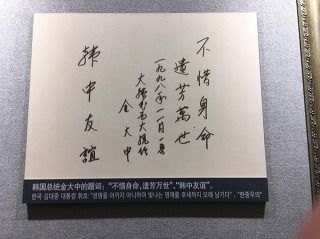 不惜身命
遺芳萬世
一九九八年十一月十一日
大韓民國大統領
金大中
韩中友誼
韩国总统金大中的题词:“不惜身命,遗芳万世”、“韩中友谊”。
한국 김대중 대통령 휘호: "생명을 아끼지 아니하여 빛나는 명예를 후세까지 오래 남기다", "한중우의"